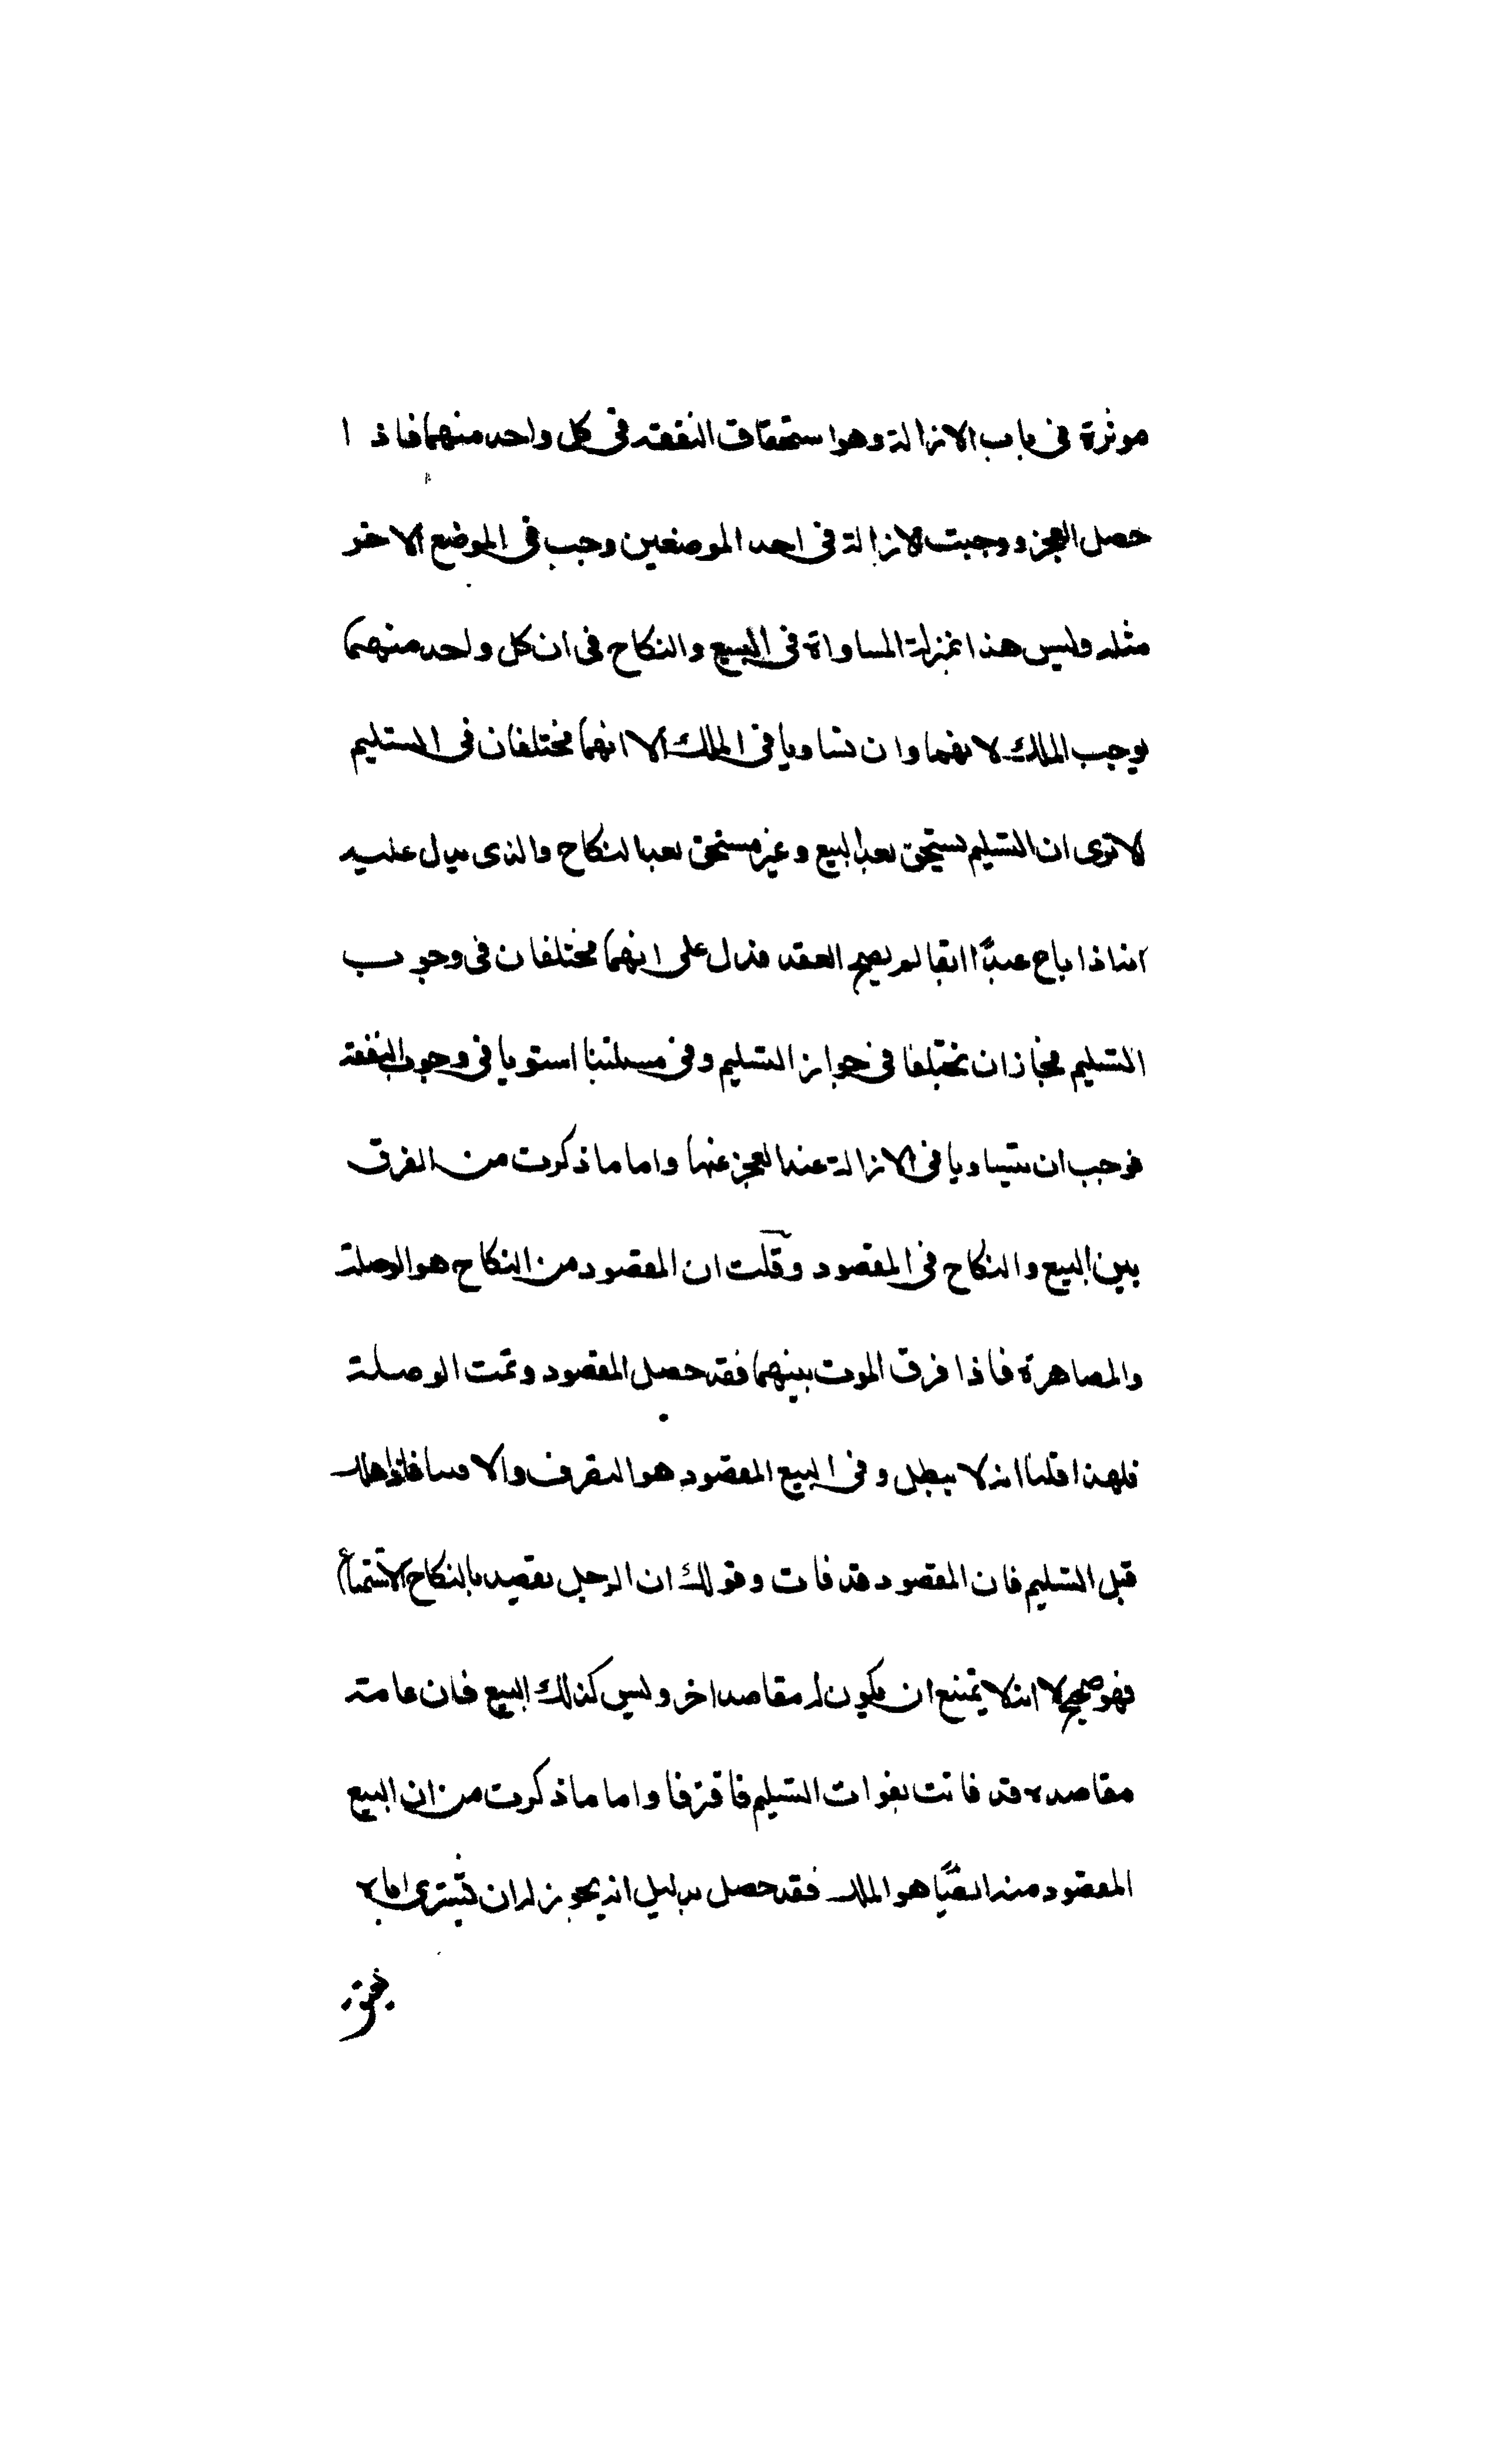 موثرة فى باب الازالة وهو استحقاق النفقة فى كل واحد منهما فاذا
حصل العجز ووجبت الازالة فى احد الموضعين وجب فى الموضع الاخر
مثله وليس هذا بمنزلة المساواة فى البيع والنكاح فى ان كل واحد منهما
يوجب الملك لانهما وان تساويا فى الملك الا انهما مختلفان فى التسليم
الا ترى ان التسليم يستحق بعد البيع وغير مستحق بعد النكاح والذى يدل عليه
انه اذا باع عبدًا ابقا لم يصح العقد فدل على انهما مختلفان فى وجوب
التسليم فجاز ان يختلفا فى جواز التسليم وفى مسلتنا استويا فى وجوب النفقة
فوجب ان يتساويا فى الازالة عند العجز عنها واما ما ذكرت من الفرق
بين البيع والنكاح فى المقصود وقلت ان المقصود من النكاح هو الوصلة
والمصاهرة فاذا فرق الموت بينهما فقد حصل المقصود وتمت الوصلة
فلهذا قلنا انه لا يبطل وفى البيع المقصود هو التصرف والاقتنا فاذا هلك
قبل التسليم فان المقصود قد فات وقولك ان الرجل يقصد بالنكاح الاستمتاع
فهو صحيح الا انه لا يمتنع ان يكون له مقاصد اخر وليس كذلك البيع فان عامة
مقاصده قد فاتت بفوات التسليم فافترقا واما ما ذكرت من ان البيع
المقصود منه ايضًا هو الملك فقد حصل بدليل انه يجوز له ان يشترى اباه